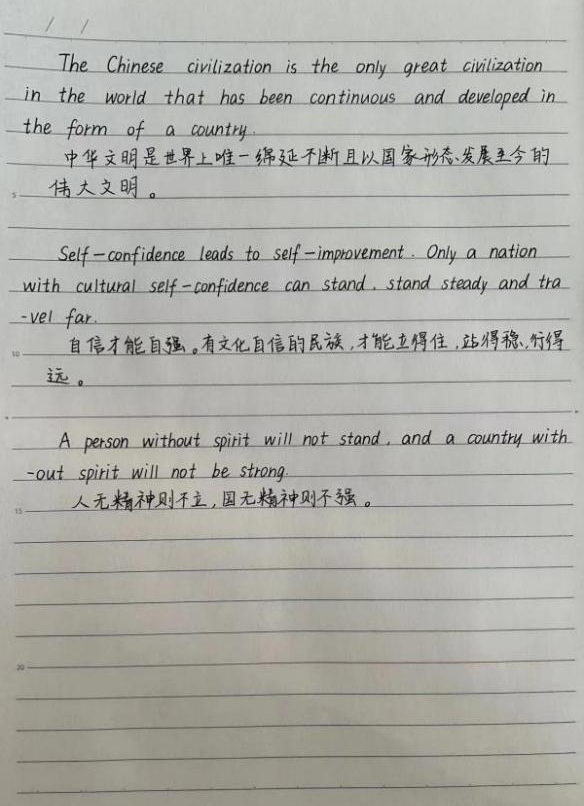 / /
The Chinese civilization is the only great civilization
in the world that has been continuous and developed in
the form of a country.
中华文明是世界上唯一绵延不断且以国家形态发展至今的
5 伟大文明。
Self-confidence leads to self-improvement. Only a nation
with cultural self-confidence can stand, stand steady and tra
-vel far.
10 自信才能自强。有文化自信的民族,才能立得住,站得稳,行得
远。
A person without spirit will not stand, and a country with
-out spirit will not be strong.
15 人无精神则不立,国无精神则不强。
20